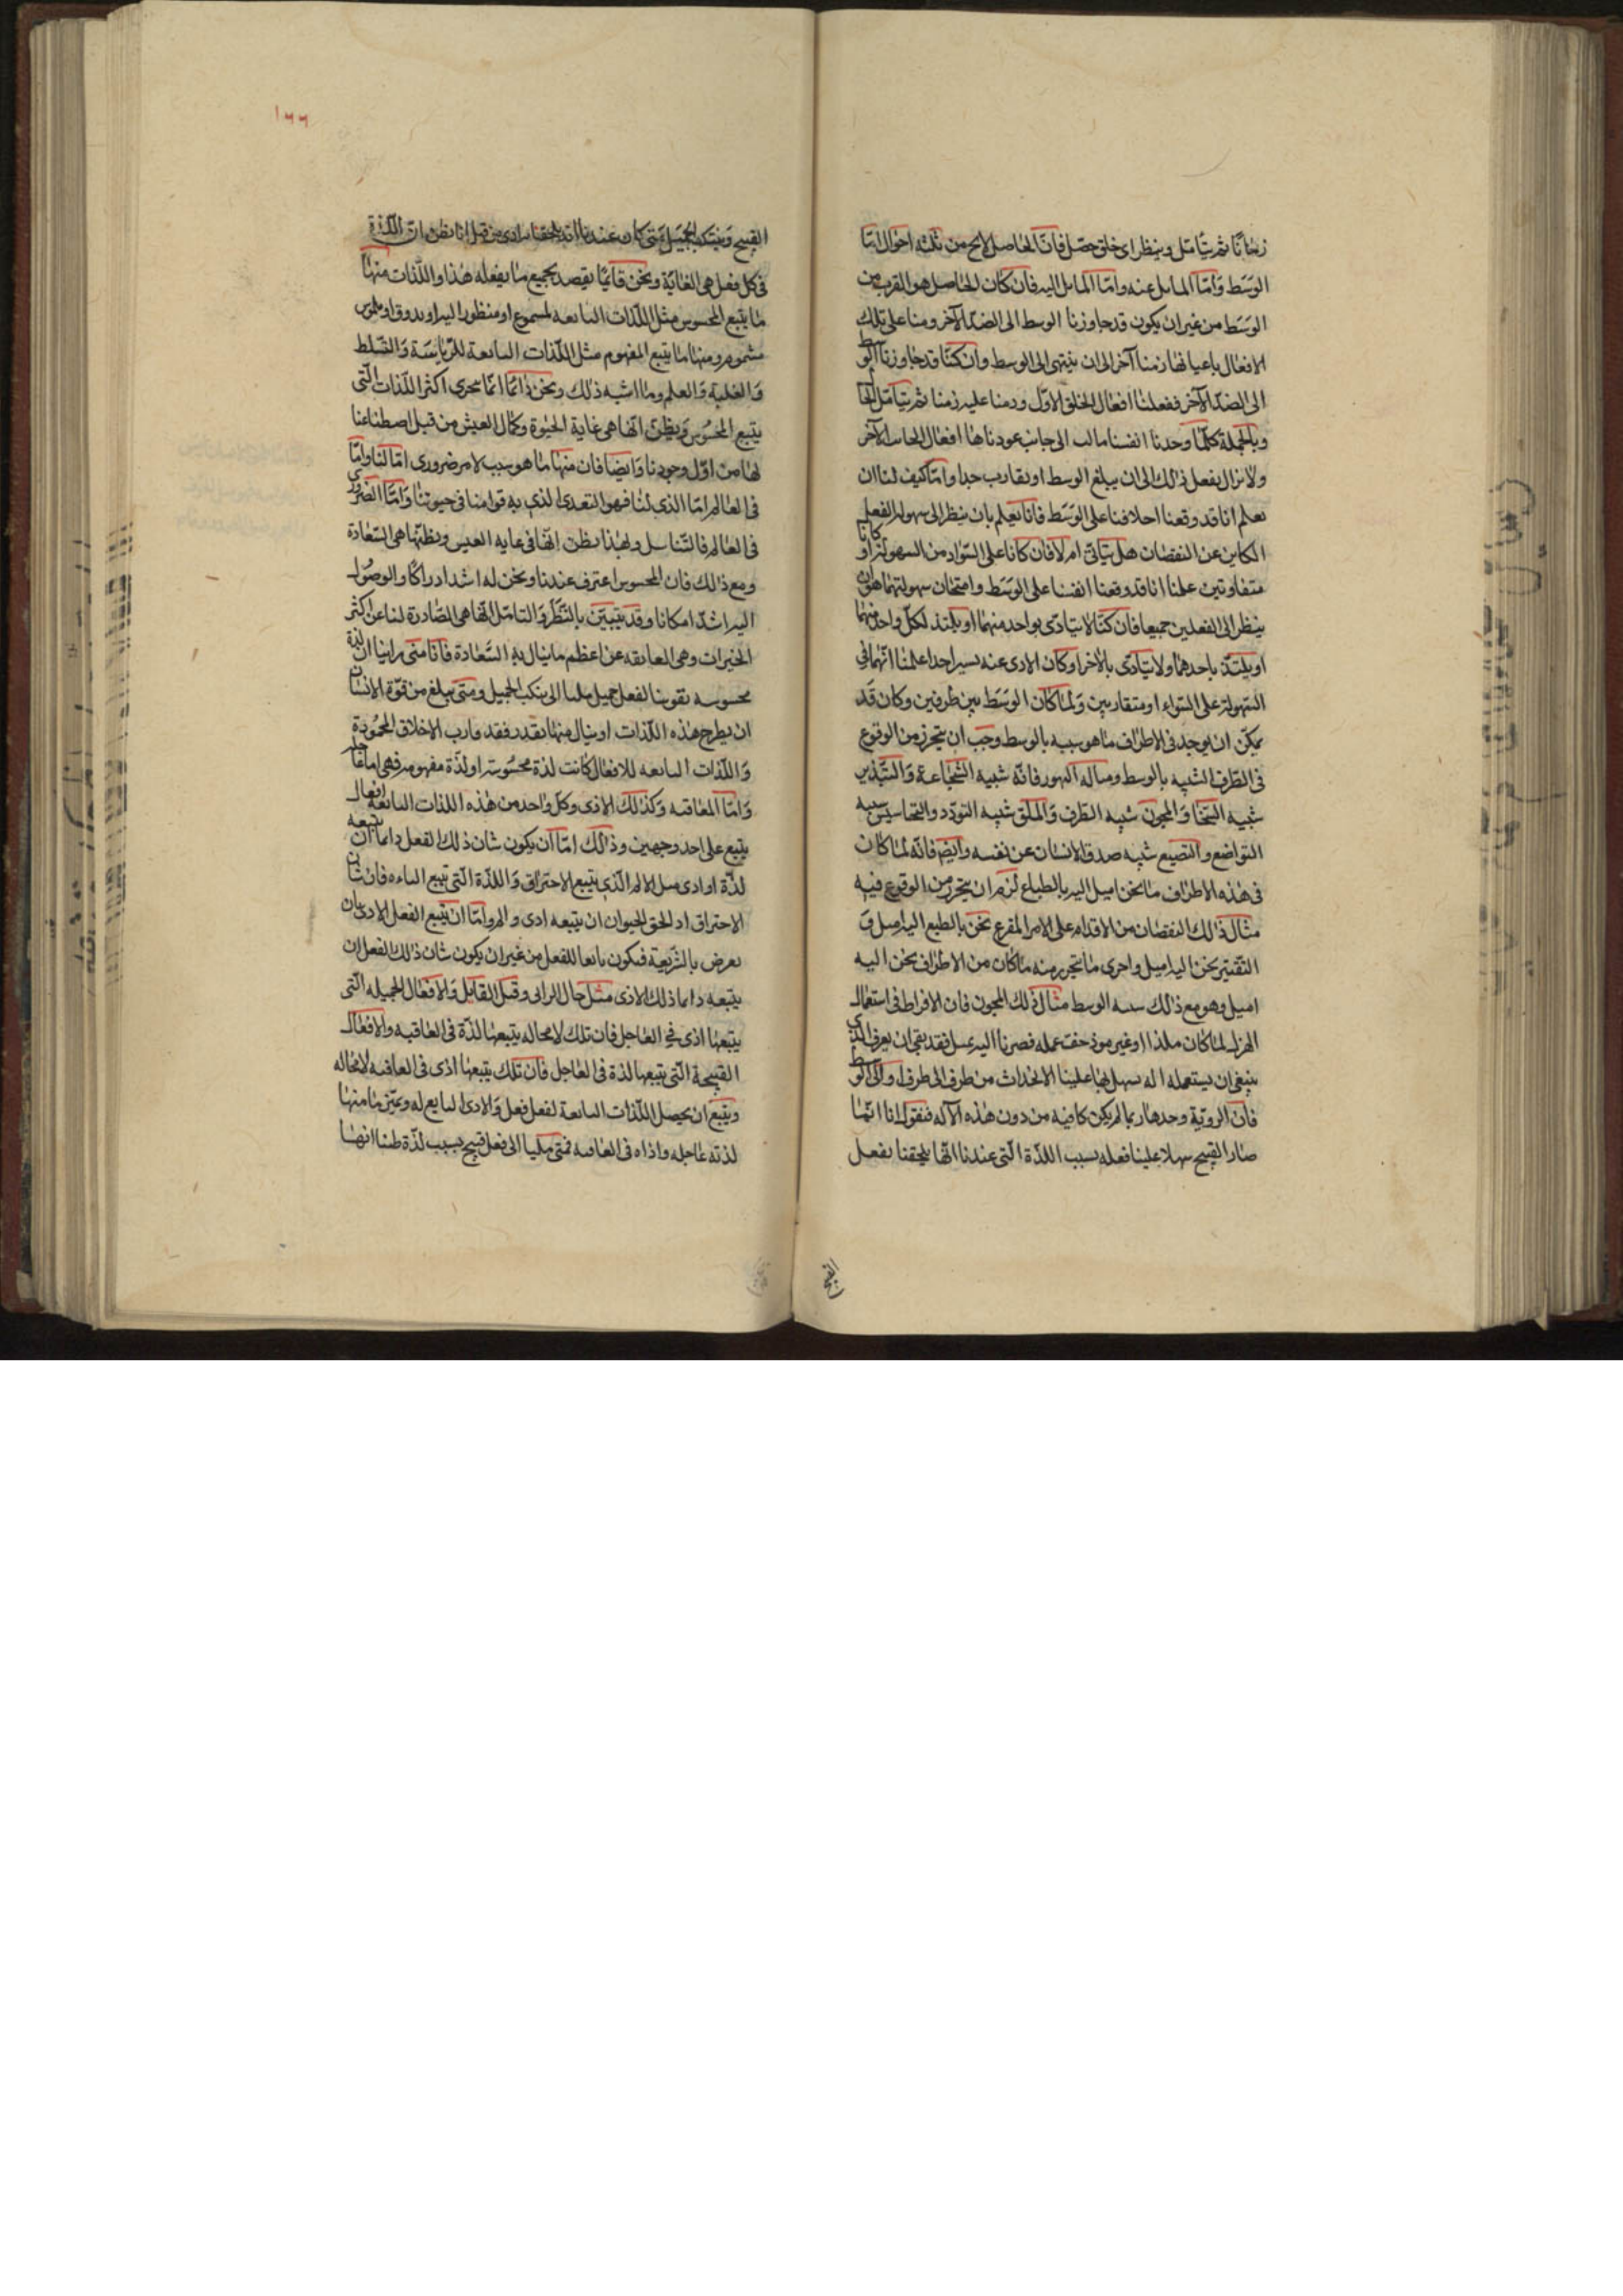 زمانًا ثم نتأمل وننظر اى خلق حصل فان الحاصل لا يخ من ثلثه احوال اما
الوسط واما المايل عنه واما المايل اليه فان كان الحاصل هو القرب من
الوسط من غير ان يكون قد جاوزنا الوسط الى الضد الآخر دمنا على تلك
الافعال باعيانها زمنا آخر الى ان ينتهى الى الوسط وان كنا قد جاوزنا الوسط
الى الضد الآخر ففعلنا افعال الخلق الاول ودمنا عليه زمنا ثم نتأمل الحال
وبالجملة كلما وجدنا انفسنا مالت الى جانب عودناها افعال الجانب الآخر
ولا نزال نفعل ذلك الى ان يبلغ الوسط او نقارب جدا واما كيف لنا ان
نعلم انا قد وقعنا اخلاقنا على الوسط فانا نعلم بان ننظر الى سهولة الفعل
الكاين عن النقصان هل يتأتى ام لا فان كانا على السواء من السهولة او كانا
متفاوتين علمنا انا قد وقعنا انفسنا على الوسط وامتحان سهولتهما هو ان
ينظر الى الفعلين جميعا فان كنا لا نتأذى بواحد منهما او يلتذ لكل واحد منهما
او يلتذ باحدهما ولا نتأذى بالآخر او كان الاذى عنه يسير اجدا علمنا انهما في
السهولة على السواء او متقاربين ولما كان الوسط بين طرفين وكان قد
يمكن ان يوجد فى الاطراف ما هو شبيه بالوسط وجب ان يتحرز من الوقوع
فى الطرف الشبيه بالوسط ومثاله التهور فانه شبيه الشجاعة والتبذير
شبيه السخا والمجون شبيه الظرف والملق شبيه التودد والتخاسس شبيه
التواضع والتصنع شبيه صدق الانسان عن نفسه وايضم فانه لما كان
فى هذه الاطراف ما نحن اميل اليه بالطباع لزم ان يتحرز من الوقوع فيه
مثال ذلك النقصان من الاقدام على الامر المفزع نحن بالطبع اليه اميل و
التقتير نحن اليه اميل واحرى ما يتحرز منه ما كان من الاطراف نحن اليه
اميل وهو مع ذلك شبيه الوسط مثال ذلك المجون فان الافراط فى استعمال
الهزل لما كان ملذا او غير موذ خفت عمله فصرنا اليه نميل فقد بقى ان يعرف الذى
ينبغى ان يستعمله اله يسهل بها علينا الانجذاب من طرف الى طرف او الى الوسط
فان الروية وحدها ربما لم يكن كافيه من دون هذه الآله فنقول انا انما
صار القبيح سهلا علينا فعله بسبب اللذة التى عندنا انها يلحقنا بفعل
القبيح
١٦٦
القبيح ويتنكب الجميل متى كان عندنا انه يلحقنا به اذى من قبل انا نظن ان اللذة
فى كل فعل هى الغاية ونحن قايما يقصد بجميع ما يفعله هذا واللذات منها
ما يتبع المحسوس مثل اللذات التابعه لمسموع او منظور اليه او بذوق او ملموس
مشموم ومنها ما يتبع المفهوم مثل اللذات التابعة للرياسة والتسلط
والغلبة والعلم وما اشبه ذلك ونحن دائما انما نتحرى اكثر اللذات التى
يتبع المحسوس ويظن انها هى غاية الحيوة وكمال العيش من قبل اصطناعنا
لها من اول وجودنا وايضا فان منها ما هو سبب لامر ضرورى اما لنا واما
فى العالم اما الذى لنا فهو التغذى الذى به قوامنا فى حيوتنا واما الضرورى
فى العالم فالتناسل ولهذا نظن انها فى غايه العيش ونظنها هى السعادة
ومع ذلك فان المحسوس اعترف عندنا ونحن له اشد ادراكا والوصول
اليه اشد امكانا وقد يتبين بالنظر والتامل انها هى الصادرة لنا عن اكثر
الخيرات وهى العايقه عن اعظم ما ينال به السعادة فانا متى راينا ان لذة
محسوسه تفوتنا لفعل جميل ملنا الى تنكب الجميل ومتى بلغ من قوة الانسان
ان يطرح هذه اللذات او ينال منها بقدر فقد قارب الاخلاق المحمودة
واللذات التابعه للافعال كانت لذة محسوسة او لذة مفهومه فهى اما عاجلة
واما العاقبه وكذلك الاذى وكل واحد من هذه اللذات التابعة افعال
يتبع على احد وجهين وذلك اما ان يكون شان ذلك الفعل دايما ان يتبعه
لذة او اذى مثل الالم الذى يتبع الاحتراق واللذة التى تتبع الباءه فان شان
الاحتراق اذ الحق الحيوان ان يتبعه اذى والم واما ان يتبع الفعل الاذى بان
يعرض بالشريعة فيكون تابعا للفعل من غير ان يكون شان ذلك الفعل ان
يتبعه دايما ذلك الاذى مثل حال الزانى وقتل القاتل والافعال الجميله التى
يتبعها اذى فى العاجل فان تلك لا محاله يتبعها لذة فى العاقبه والافعال
القبيحة التى يتبعها لذة فى العاجل فان تلك يتبعها اذى فى العاقبه لا محاله
وينبغى ان يحصل اللذات التابعة لفعل فعل والاذى التابع له ونميز ما منها
لذته عاجله واذاه فى العاقبه فمتى ملنا الى فعل قبيح بسبب لذة ظننا انها